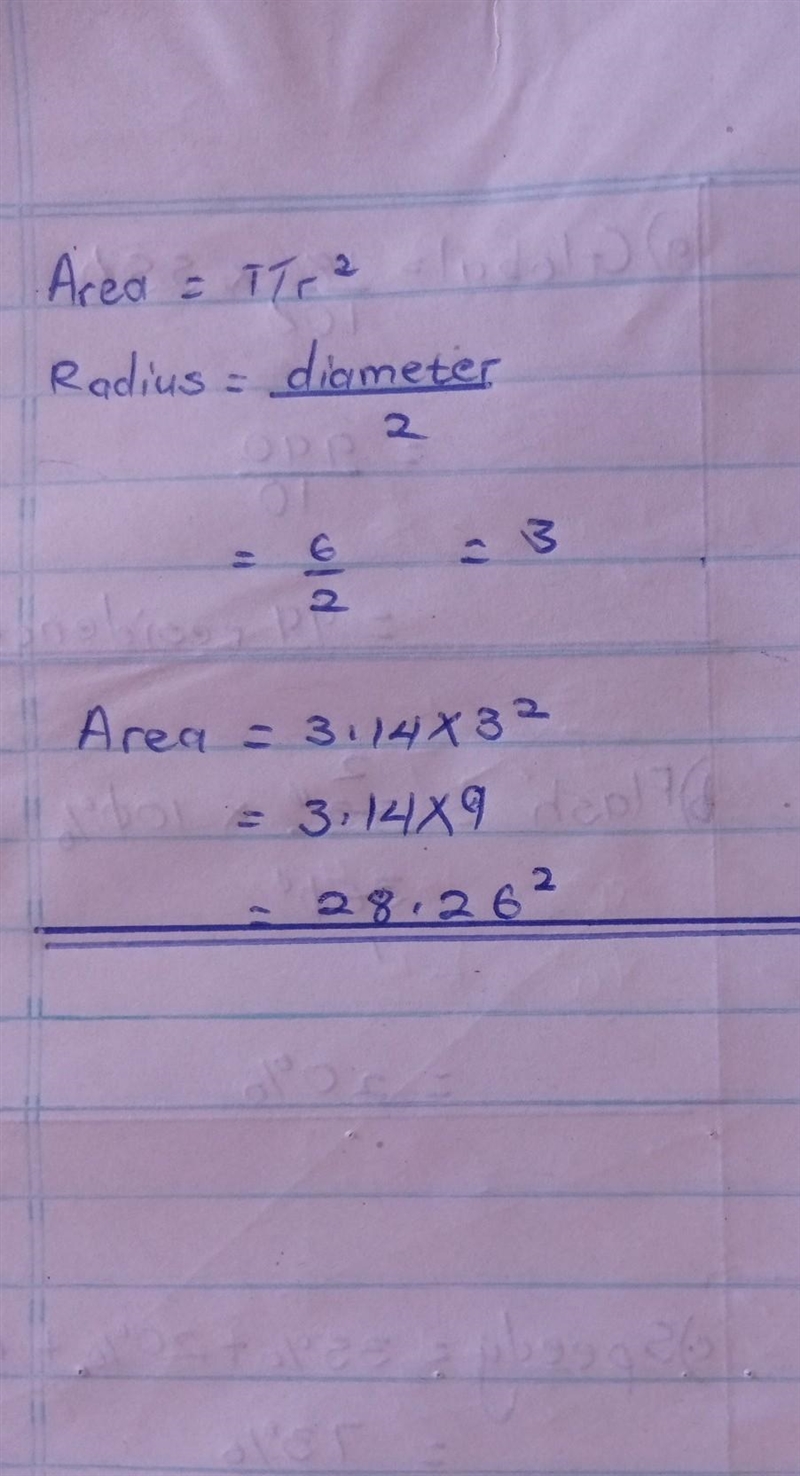 Area = πr²
Radius = diameter
2
= 6/2 = 3
Area = 3.14×3²
= 3.14×9
= 28.26²